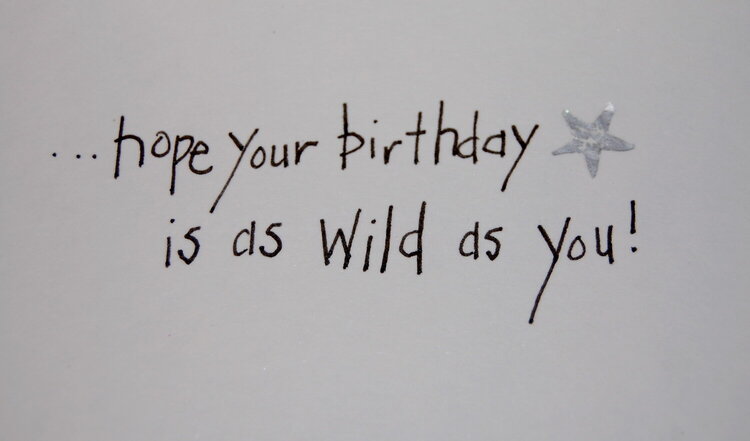 ...hope your birthday
is as Wild as you!